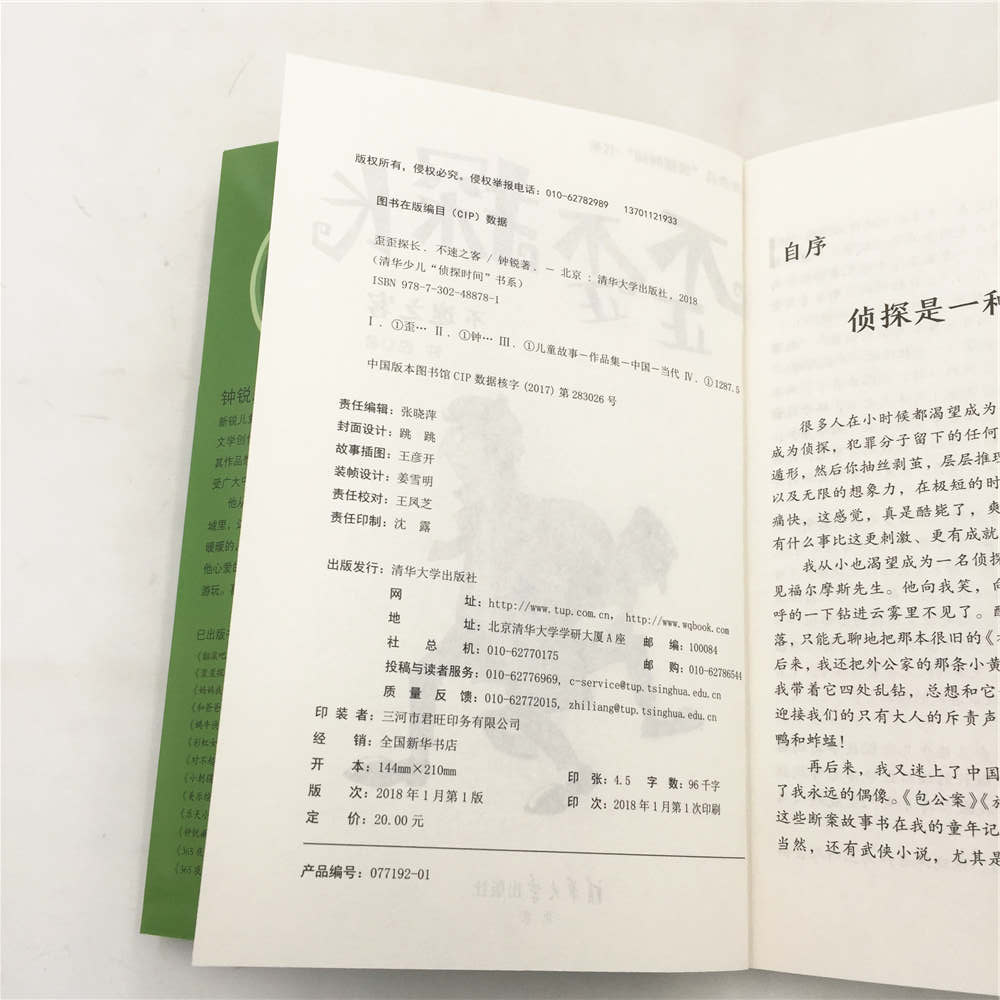 版权所有，侵权必究。侵权举报电话：010-62782989 13701121933
图书在版编目（CIP）数据
歪歪探长．不速之客 / 钟锐著．— 北京：清华大学出版社，2018
（清华少儿“侦探时间”书系）
ISBN 978-7-302-48878-1
Ⅰ．①歪… Ⅱ．①钟… Ⅲ．①儿童故事－作品集－中国－当代 Ⅳ．①I287.5
中国版本图书馆CIP数据核字（2017）第283026号
责任编辑：张晓萍
封面设计：跳 跳
故事插图：王彦开
装帧设计：姜雪明
责任校对：王凤芝
责任印制：沈 露
出版发行：清华大学出版社
网 址：http://www.tup.com.cn，http://www.wqbook.com
地 址：北京清华大学学研大厦A座 邮 编：100084
社 总 机：010-62770175 邮 购：010-62786544
投稿与读者服务：010-62776969，c-service@tup.tsinghua.edu.cn
质 量 反 馈：010-62772015，zhiliang@tup.tsinghua.edu.cn
印 装 者：三河市君旺印务有限公司
经 销：全国新华书店
开 本：144mm×210mm 印 张：4.5 字 数：96千字
版 次：2018年1月第1版 印 次：2018年1月第1次印刷
定 价：20.00元
产品编号：077192-01
自序
侦探是一种
很多人在小时候都渴望成为
成为侦探，犯罪分子留下的任何
遁形，然后你抽丝剥茧，层层推理
以及无限的想象力，在极短的时
痛快，这感觉，真是酷毙了，爽
有什么事比这更刺激、更有成就
我从小也渴望成为一名侦探
见福尔摩斯先生。他向我笑，向
呼的一下钻进云雾里不见了。醒
落，只能无聊地把那本很旧的《
后来，我还把外公家的那条小黄
我带着它四处乱钻，总想和它
迎接我们的只有大人的斥责声
鸭和蚱蜢！
再后来，我又迷上了中国
了我永远的偶像。《包公案》《
这些断案故事书在我的童年记
当然，还有武侠小说，尤其是
钟锐
新锐儿
文学创
其作品
受广大
他从
城里，
暖暖的
他心爱的
游玩。
已出版